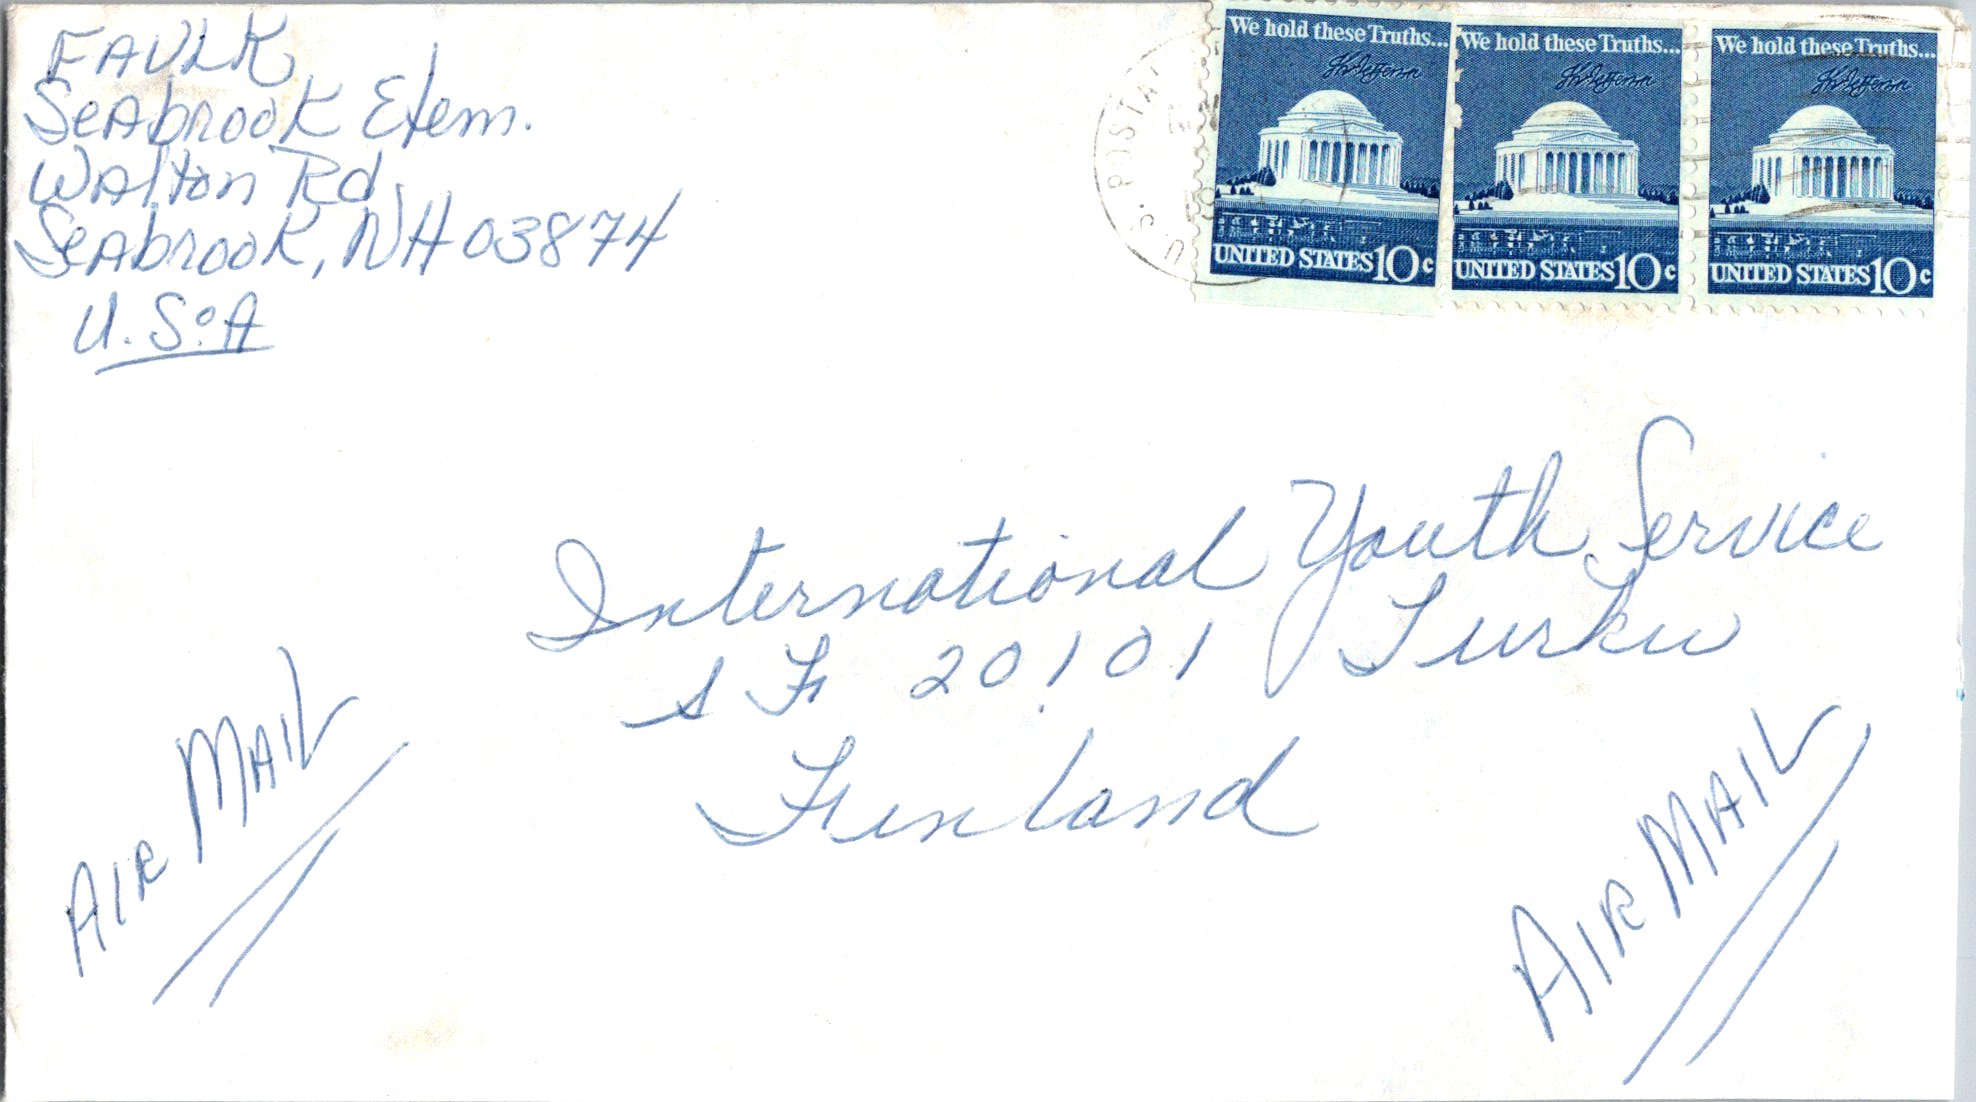 FAULK
Seabrook Elem.
Walton Rd
Seabrook, NH 03874
U.S.A
U.S. POSTAL
We hold these Truths...
Th Jefferson
UNITED STATES 10c
We hold these Truths...
Th Jefferson
UNITED STATES 10c
We hold these Truths...
Th Jefferson
UNITED STATES 10c
International Youth Service
SF 20101 Turku
Finland
AIR MAIL
AIR MAIL